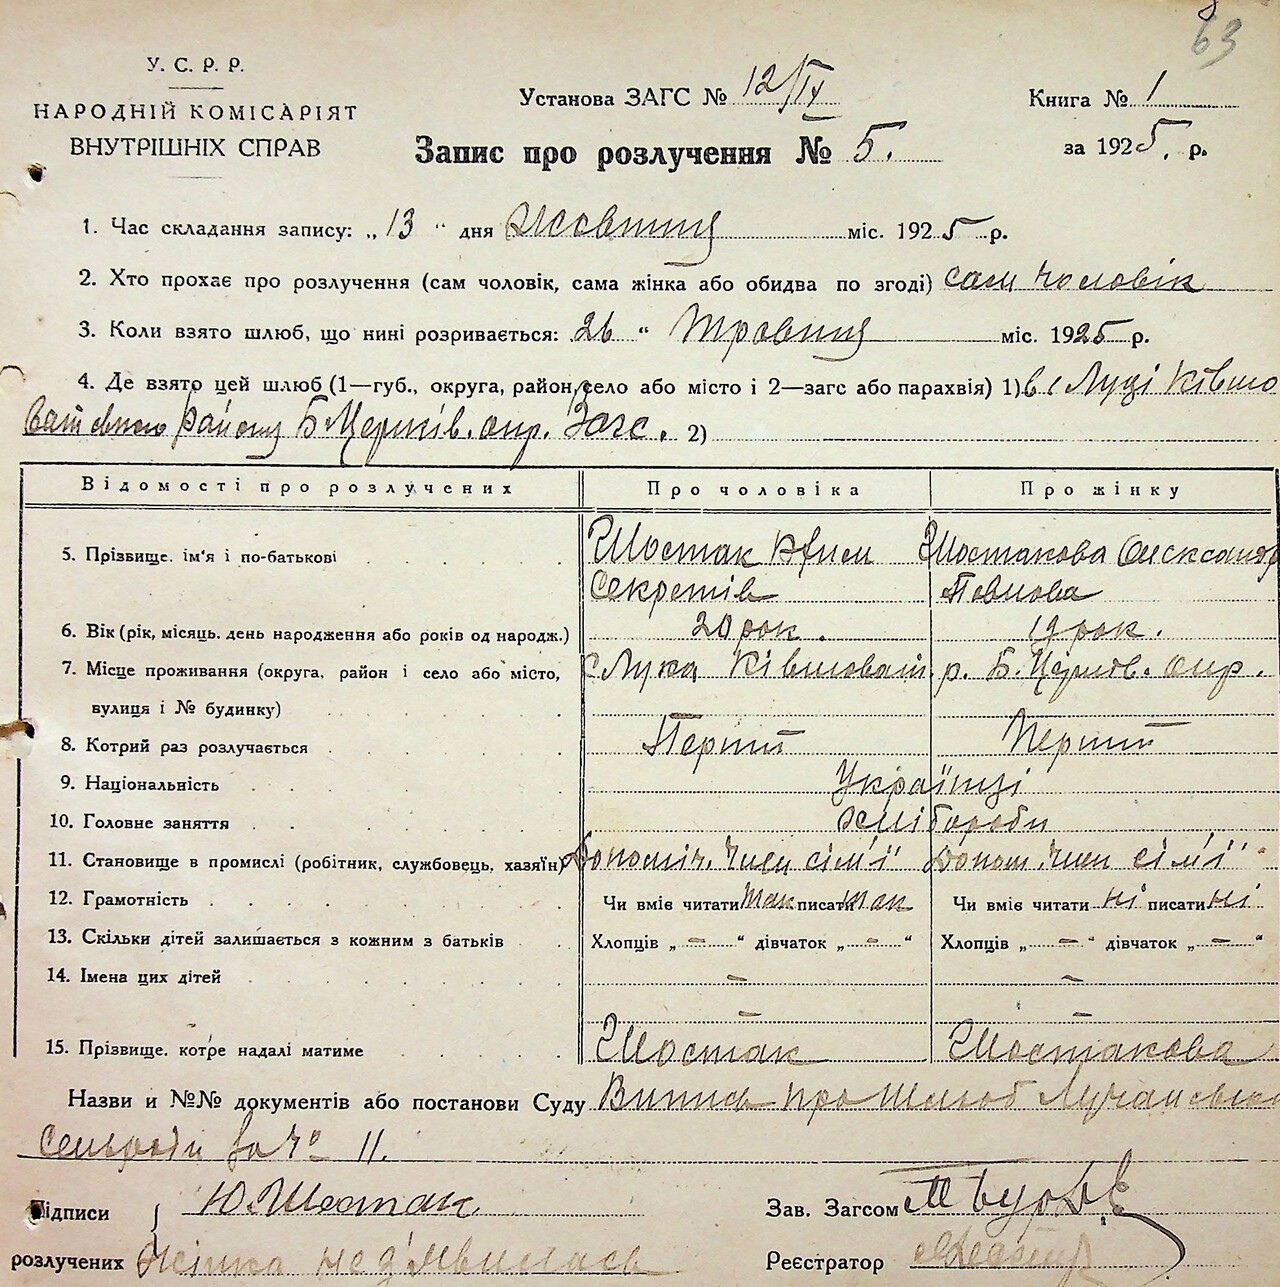 63
У. С. Р. Р.
НАРОДНІЙ КОМІСАРІЯТ
ВНУТРІШНІХ СПРАВ
Установа ЗАГС № 12/IX
Книга № 1
Запис про розлучення № 5.
за 1925. р.
1. Час складання запису: „ 13 “ дня Жовтня міс. 1925 р.
2. Хто прохає про розлучення (сам чоловік, сама жінка або обидва по згоді) сам чоловік
3. Коли взято шлюб, що нині розривається: 26 “ Травня міс. 1925 р.
4. Де взято цей шлюб (1—губ., округа, район, село або місто і 2—загс або парахвія) 1) в с Луці Ківшо
ватського району Б Церків. окр. Загс. 2)
Відомості про розлучених Про чоловіка Про жінку
5. Прізвище, ім'я і по-батькові Шостак Юхим Шостакова Олександр
Секретів Павлова
6. Вік (рік, місяць, день народження або років од народж.) 20 рок. 19 рок.
7. Місце проживання (округа, район і село або місто, с Лука Ківшоват. р. Б. Церків. окр.
вулиця і № будинку)
8. Котрий раз розлучається Перший Перший
9. Національність Українці
10. Головне заняття хлібороби
11. Становище в промислі (робітник, службовець, хазяїн) Допоміч. член сім'ї Допом. член сім'ї
12. Грамотність Чи вміє читати так писати так Чи вміє читати ні писати ні
13. Скільки дітей залишається з кожним з батьків Хлопців „ – “ дівчаток „ – “ Хлопців „ – “ дівчаток „ – “
14. Імена цих дітей – –
– –
15. Прізвище, котре надалі матиме Шостак Шостакова
Назви и №№ документів або постанови Суду Випись про шлюб Лучанської
сельради за № 11.
Підписи Ю. Шостак Зав. Загсом
розлучених жінка не з'явилась Реєстратор